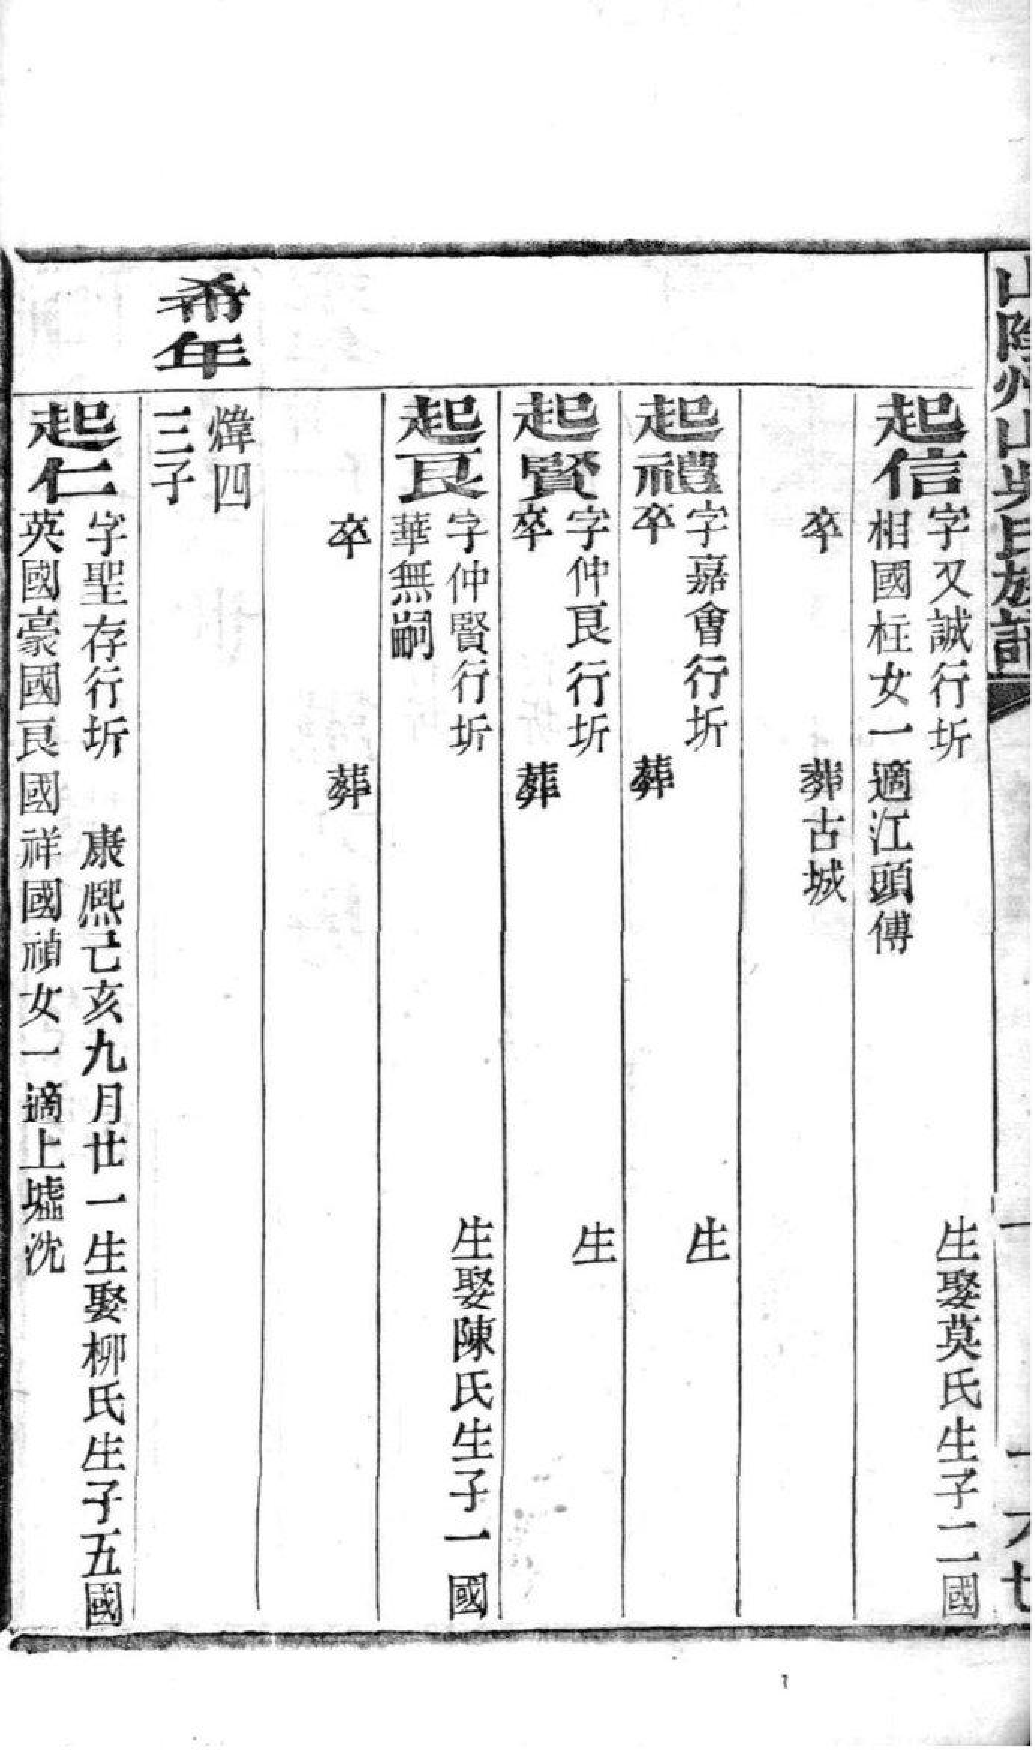 山陰州山吳氏族譜
起信
字又誠行圻 生娶莫氏生子二國
相國柱女一適江頭傅
卒 葬古城
起禮
字嘉會行圻 生
卒 葬
起賢
字仲良行圻 生
卒 葬
起良
字仲賢行圻 生娶陳氏生子一國
華無嗣
卒 葬
希年
煒四
三子
起仁
字聖存行圻 康熙己亥九月廿一生娶柳氏生子五國
英國豪國良國祥國禎女一適上墟沈